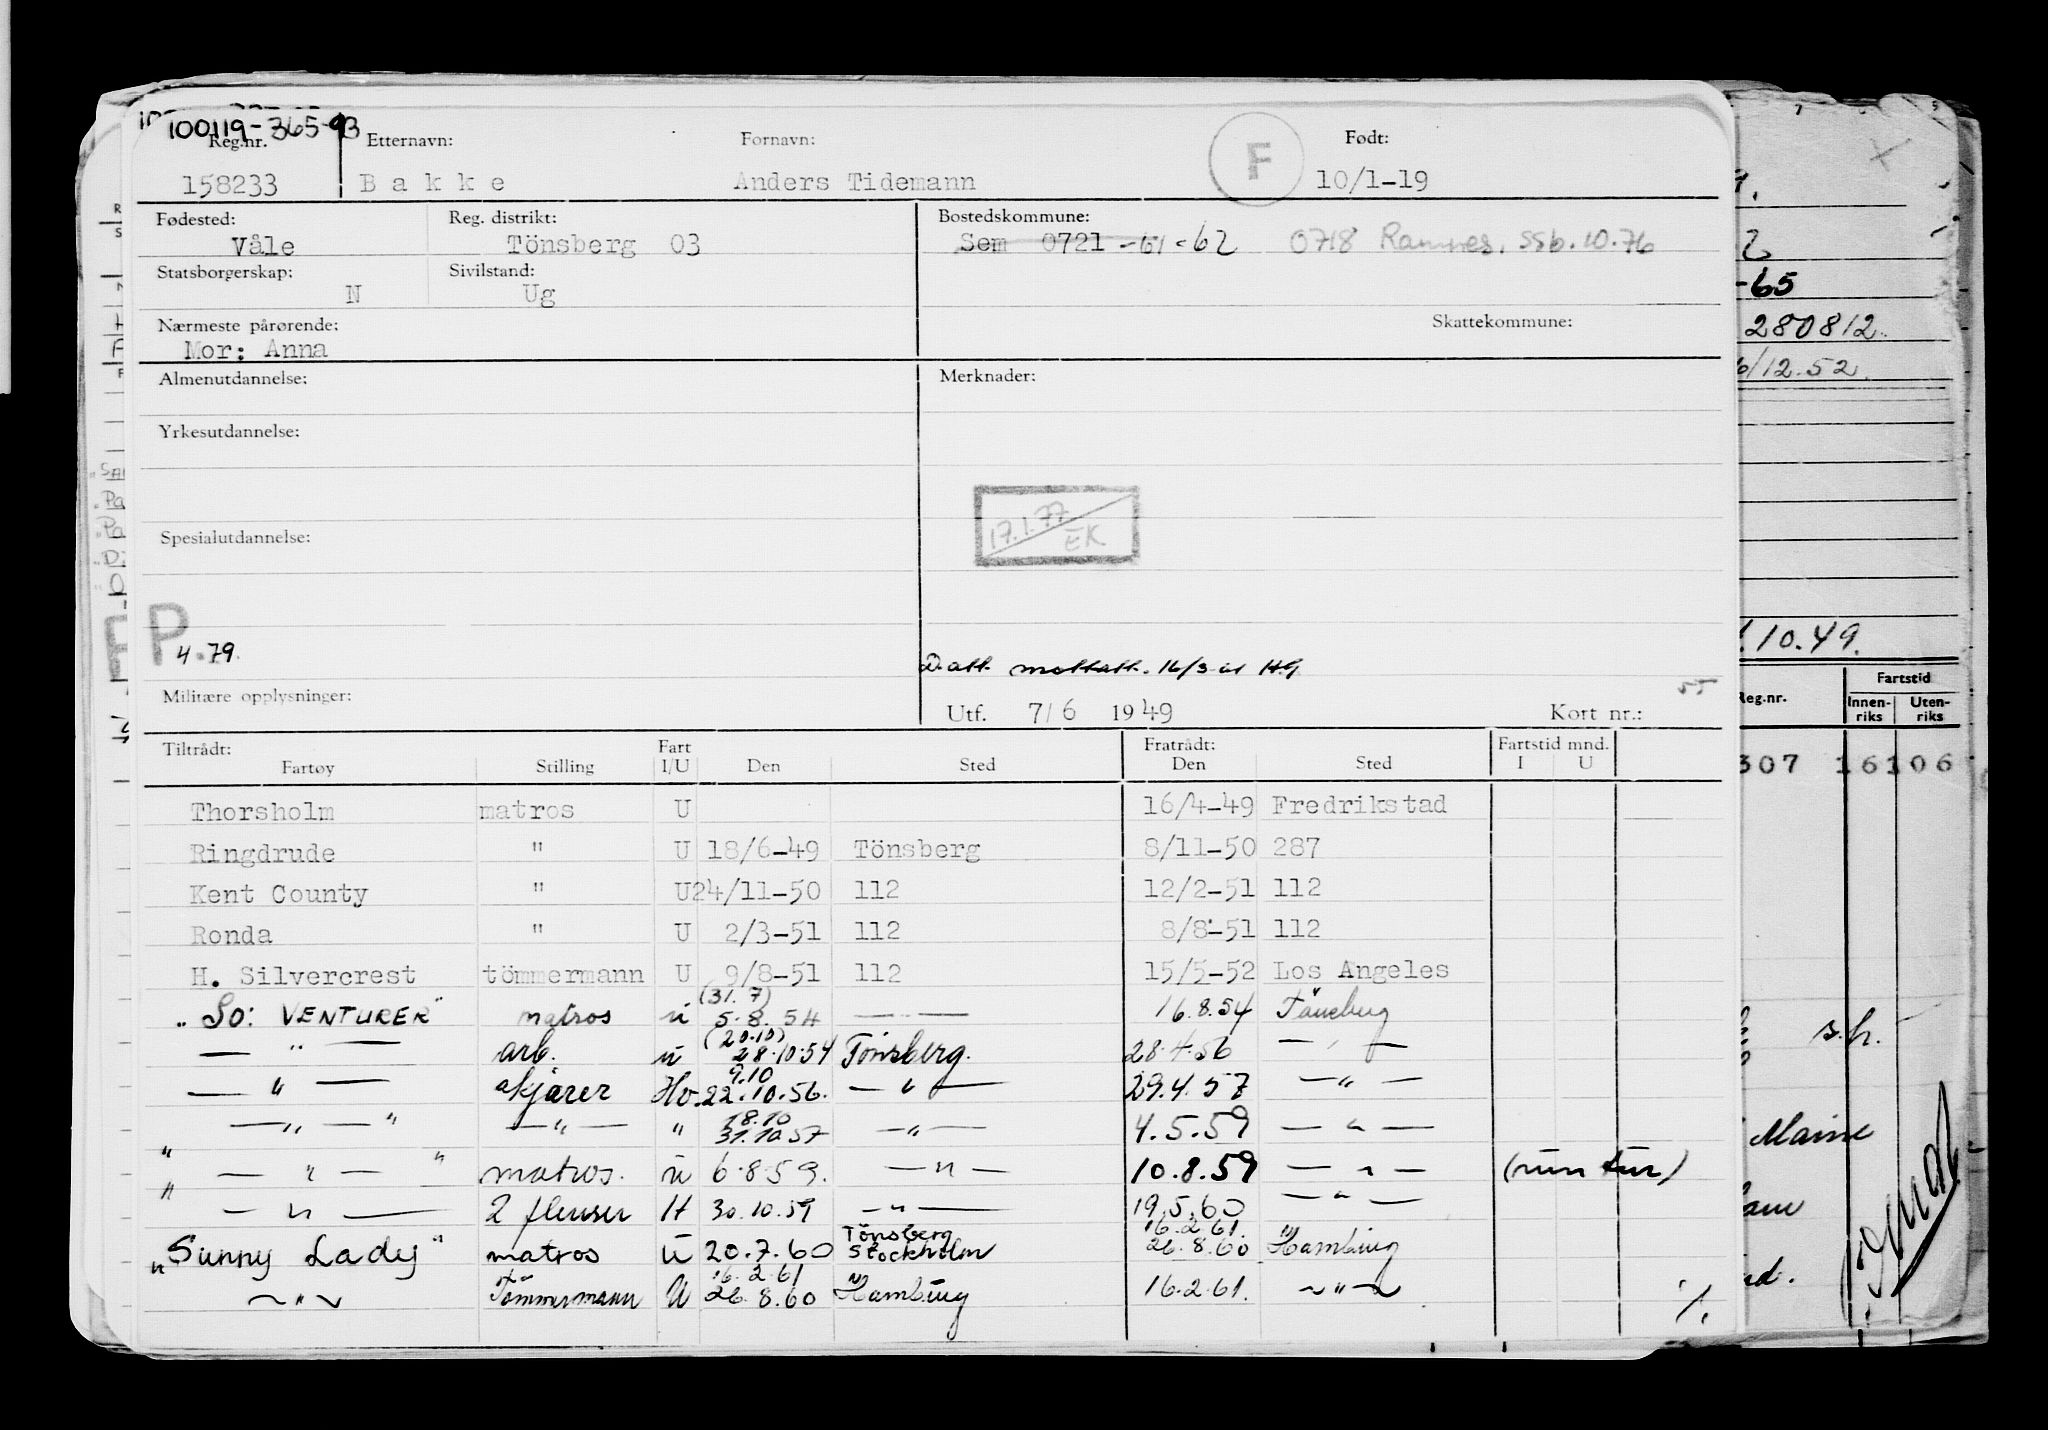 100119-365-93
Reg.nr. Etternavn: Fornavn: F Født:
158233 Bakke Anders Tidemann 10/1-19
Fødested: Reg. distrikt: Bostedskommune:
Våle Tönsberg 03 Sem 0721 -61-62 0718 Ramnes. SSb.10.76
Statsborgerskap: Sivilstand:
N Ug
Nærmeste pårørende: Skattekommune:
Mor: Anna
Almenutdannelse: Merknader:
Yrkesutdannelse:
17.1.77 EK
Spesialutdannelse:
P
4.79.
D.att. 16/3
Militære opplysninger: Utf. 7/6 1949 Kort nr.:
Tiltrådt: Fart Fratrådt: Fartstid mnd.
Fartøy Stilling I/U Den Sted Den Sted I U
Thorsholm matros U 16/4-49 Fredrikstad
Ringdrude " U 18/6-49 Tönsberg 8/11-50 287
Kent County " U 24/11-50 112 12/2-51 112
Ronda " U 2/3-51 112 8/8-51 112
H. Silvercrest tömmermann U 9/8-51 112 15/5-52 Los Angeles
(31.7)
"So: VENTURER" matros u 5.8.54 — " — 16.8.54 Tönsberg
(20.10)
— " — arb. u 28.10.54 Tönsberg. 28.4.56 — " —
9.10
— " — skjærer Hv. 22.10.56. — " — 29.4.57 — " —
18.10
— " — " — " — " 31.10.57 — " — 4.5.59 — " —
" — " — " matros. u 6.8.59. — " — 10.8.59 — " — (run tur)
" — " — 2 flenser H 30.10.59 — " — 19.5.60 — " —
Tönsberg 16.2.61.
"Sunny Lady" matros u 20.7.60 Stockholm 26.8.60 Hamburg
16.2.61
— " — Tömmermann U 26.8.60 Hamburg 16.2.61. — " — ./.
2
-65
280812.
/12.52.
10.49.
Reg.nr. Fartstid
Innen- Uten-
riks riks
307 16106
s.h.
Maine